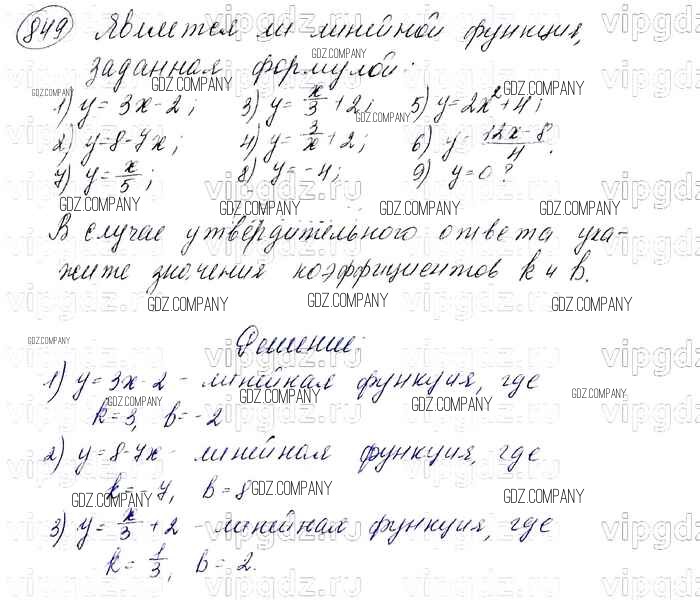 849 Является ли линейной функция,
заданная формулой:
1) y = 3x - 2; 3) y = x/3 + 2; 5) y = 2x² + 4;
2) y = 8 - 7x; 4) y = 3/x + 2; 6) y = (12x - 8)/4.
7) y = x/5; 8) y = -4; 9) y = 0?
В случае утвердительного ответа ука-
жите значения коэффициентов k и b.
Решение:
1) y = 3x - 2 - линейная функция, где
k = 3, b = -2
2) y = 8 - 7x - линейная функция, где
k = -7, b = 8
3) y = x/3 + 2 - линейная функция, где
k = 1/3, b = 2.